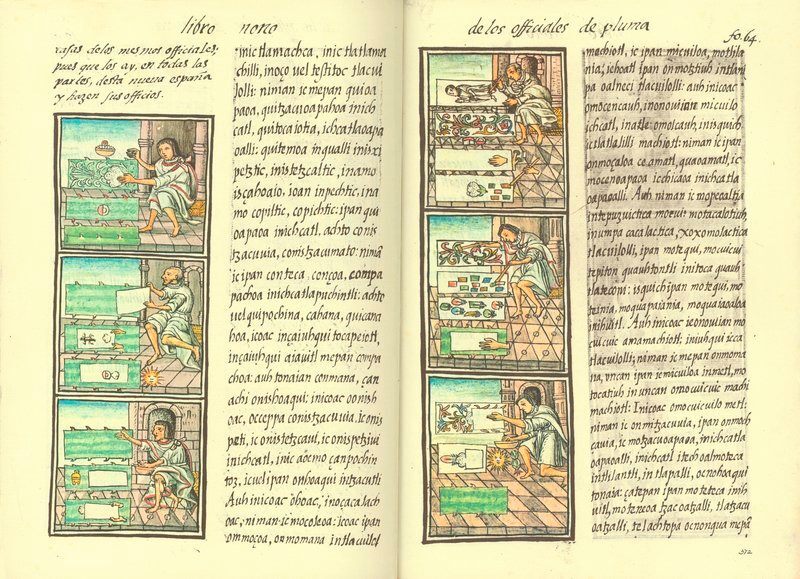 libro nono
rasas de los mesmos officiales:
pues que los ay, en todas las
partes, desta nueua españa
y hazen sus officios.
mictlamachca, inic tlatlama
chilli, inoço vel testitoc tlacui
lolli: niman ic mepan quioa
paoa, quitzacuoapahoa inich
catl, quitocaiotia, ichcatlaoapa
oalli: quitemoa in qualli inixxi
petztic, inixtetzcaltic, in amo
ixcahoaio, ioan inpechtic, ina
mo copiltic, copichtic: ipan qui
oapaoa inichcatl. achto conix
tzacuuia, comixtzacumato: nimā
ic ipan conteca, conçoa, compa
pachoa inichcatlapuchintli: achto
uel quipochina, cahana, quicana
hoa, icoac inçaiuhqui tocapeiotl,
inçaiuhqui aiauitl mepan compa
choa: auh tonaian conmana, çan
achi onixhoaqui; inicoac onixh
oac, occeppa conixtzacuuia, iconix
petz, ic onixtetzcaui, ic onixpetziui
inichcatl, inic aocmo çan pochin
toz, icuel ipan onhoaqui intzacutli
Auh inicoac ohoac, inoçacalach
oac, niman ic mocoleoa: icoac ipan
ommoçoa, onmomana intlacuilol
de los officiales de pluma
fo. 64.
machiotl, ic ipan micuiloa, mothila
nia, iehoatl ipan onmotztiuh intlani
pa oalneci tlacuilolli: auh inicoac
omocencauh, inonouian micuilo
ichcatl, inatle omolcauh, inisquich
ictlatlalilli machiotl: niman ic ipan
onmoçaloa ce amatl, quaoamatl, ic
mocenoapaoa icchicaoa inichcatla
oapaoalli. Auh niman ic mopeoaltia
ipan motequi, mocuicui
tepiton quauhtontli initoca quauh
tlateconi: isquich ipan motequi, mo
teinia, moquapaiania, moquaiaoaloa
inihuitl. Auh inicoac ie onouian mo
cuicuic amamachiotl; iniuhqui icca
tlacuilolli; niman ic mepan onmoma
na, vncan ipan ic micuiloa inmetl, mo
tocatiuh in vncan omocuicuic machi
machiotl: Inicoac omocuicuilo metl:
niman ic onmitzacuia, ipan onmoch
cauia, ic motzacuoapaoa, inichcatla
oapaoalli, inichcatl itech oalmoteca
inthilantli, in tlapalli, ocnohoaqui
tonaia: çatepan ipan moteteca inih
uitl, moteneoa tzacoatzalli, tlatzacu
oatzalli, tel achtopa ocnonqua mepā
372